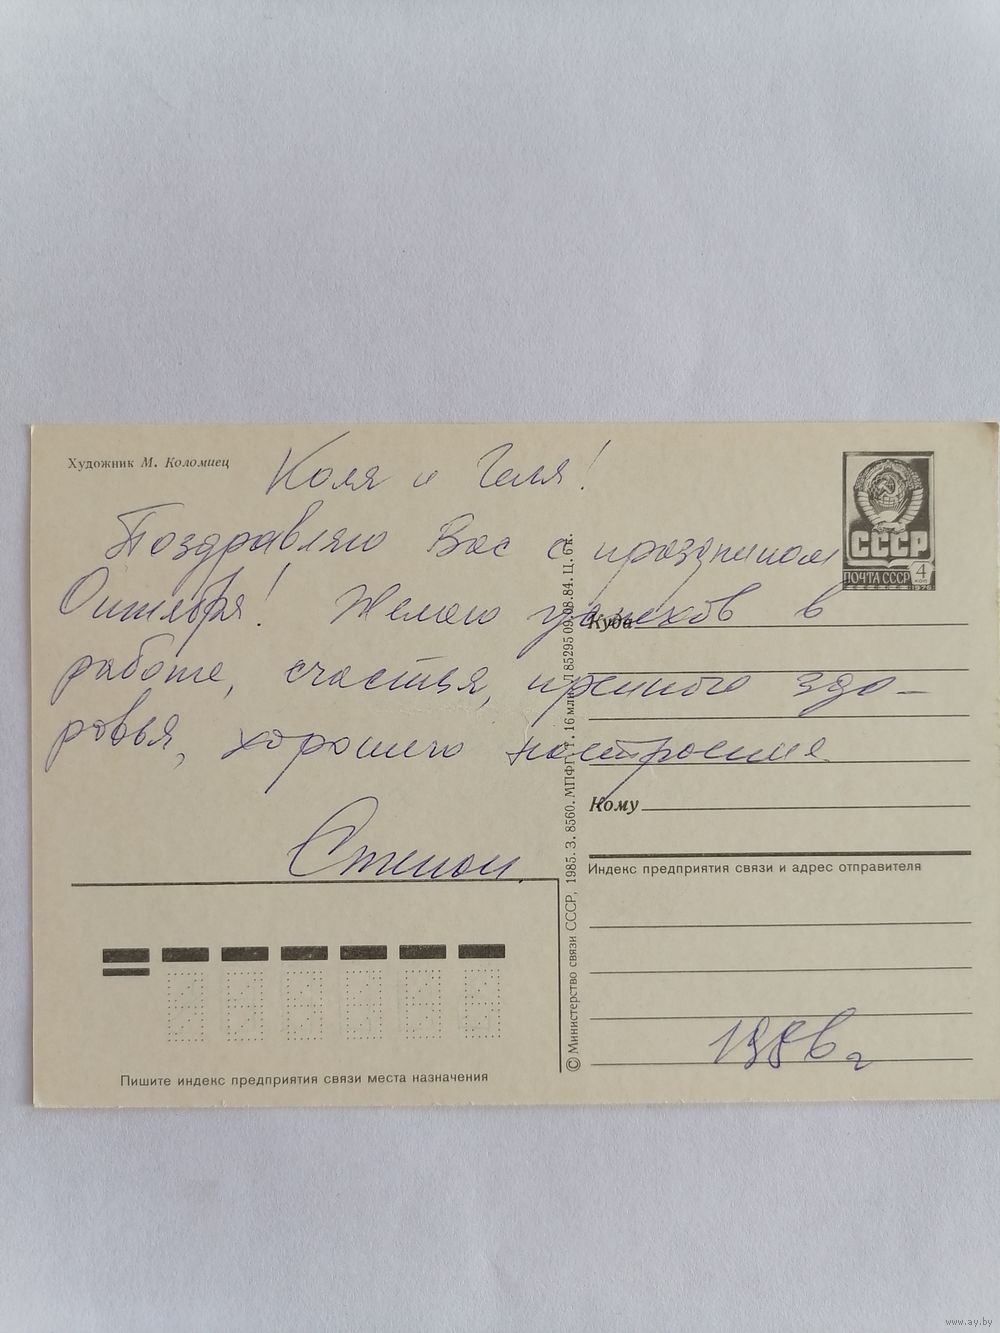 Художник М. Коломиец
Коля и Геля!
Поздравляю Вас с праздником
Октября! Желаю успехов в
работе, счастья, крепкого здо-
ровья, хорошего настроения.
Степан.
СССР
ПОЧТА СССР
4
коп
1976
Куда
Кому
Индекс предприятия связи и адрес отправителя
1986 г
© Министерство связи СССР, 1985. З. 8560. МПФГ. Т. 16 млн. 185295 09.08.84. Ц. 6 к.
Пишите индекс предприятия связи места назначения
www.ay.by